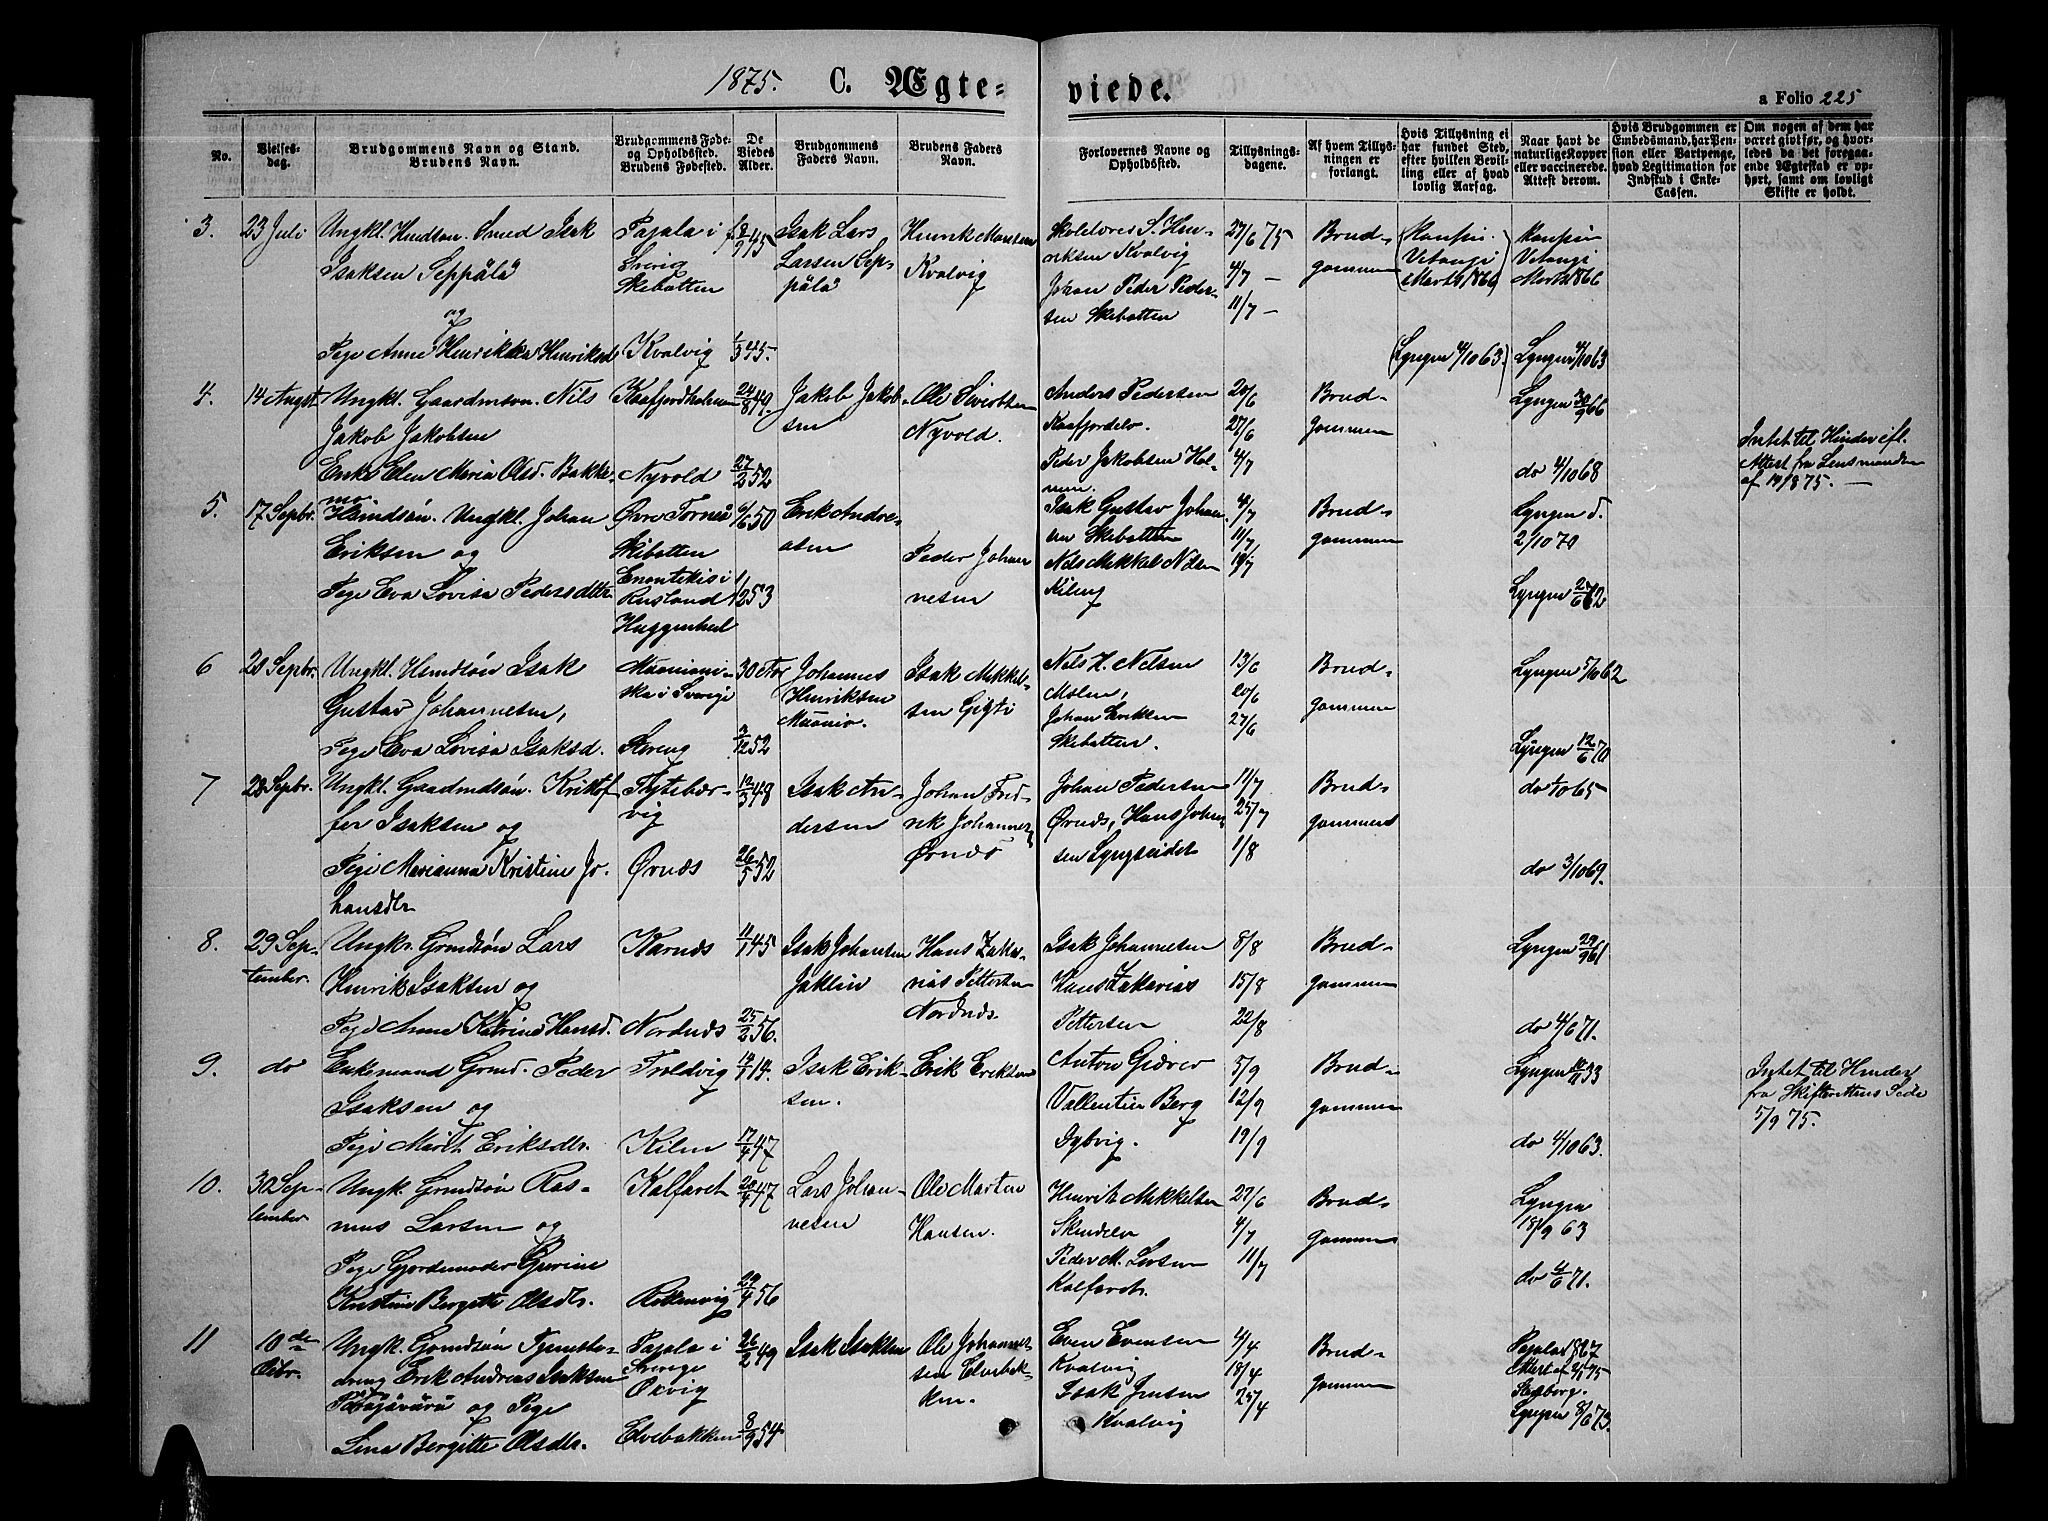 1875. C. Ægte=
viede.
a Folio 225
No.
Vielses-
dag.
Brudgommens Navn og Stand.
Brudens Navn.
Brudgommens Føde-
og Opholdssted.
Brudens Fødested.
De
Viedes
Alder.
Brudgommens
Faders Navn.
Brudens Faders
Navn.
Forlovernes Navne og
Opholdssted.
Tillysnings-
dagene.
Af hvem Tillys-
ningen er
forlangt.
Hvis Tillysning ei
har fundet Sted,
efter hvilken Bevil-
ling eller af hvad
lovlig Aarsag.
Naar havt de
naturlige Kopper
eller vaccinerede.
Attest derom.
Hvis Brudgommen er
Embedsmand, har Pen-
sion eller Vartpenge,
hvad Legitimation for
Indskud i Enke-
Cassen.
Om nogen af dem har
været givt før, og hvor-
ledes da det foregaa-
ende Ægteskab er op-
hørt, samt om lovligt
Skifte er holdt.
3.
23 Juli
Ungkl. Isak
Isaksen Seppälä
og
Pige Anne Henrikka Henriksd
Pajala i
Sverig
Skibotten
Kvalvig
9/45
45.
Isak Lars
Larsen Sep-
pälä
Henrik Monsen
Kvalvig
S. Hen-
riksen Kvalvig
Johan Peder Peder-
sen Skibotten
27/6 75
4/7 —
11/7 —
Brud-
gommen
Vitangi
(Lyngen 4/10 63.)
Vitangi
1866
Lyngen 4/10 63
4.
14 Augst
Ungkl. Gaardmsøn. Nils
Jakob Jakobsen
Enke Elen Maria Olsd. Bakke-
mo
Kaafjordholmen
Nyvold
24/8 49.
27/2 52
Jakob Jakob-
sen
Ole Sivertsen
Nyvold.
Anders Pedersen
Kaafjordelv.
Peder Jakobsen Hol-
men.
20/6
27/6
4/7
Brud-
gommen
Lyngen 30/9 66
do 4/10 68
Intet til Hinder efl.
Attest fra Lensmanden
af 19/8 75. —
5.
17 Sepbr.
Husmdsøn. Ungkl. Johan
Eriksen og
Pige Eva Lovisa Pedersdtr
Øvre Tornes
Skibotten
Enontekis i
Rusland
6/6 50
1/12 53
Erik Andre-
asen
Peder Johan-
nesen
Isak Gustav Johan-
sen Skibotten
Nils Mikkel Nilsen
Kileng
4/7
11/7
18/7
Brud-
gommen
Lyngen d.
2/10 70
Lyngen 2/6 72
6
28 Sepbr.
Ungkl. Husmdsøn Isak
Gustav Johannesen,
Pige Eva Lovisa Isaksd.
Muoniani-
ska i Sverige
Storeng
30 Aar
52
Johannes
Henriksen
Muonio.
Isak Mikkel-
sen Gigti
Nels H. Nelsen
Molen,
Johan Eriksen
Skibotten.
13/6
20/6
27/6
Brud-
gommen
Lyngen 5/10 62
Lyngen 12/6 70
7
28 Sepbr.
Ungkl. Gaardmdsøn. Kristof-
fer Isaksen og
Pige Marianna Kristine Jo-
hansdtr
Tytebær-
vig
Ørnæs
12/3 48
26/5 52
Isak An-
dersen
Johan Fred-
rik Johannes
Ørnæs
Johan Pedersen
Ørnæs, Hans Johan-
sen Lyngseidet
11/7
25/7
1/8
Brud-
gommen
do 1/10 65
do 3/10 69.
8.
29 Sep-
tember
Ungkr. Grmdsøn Lars
Henrik Isaksen og
Pige Anne Katrine Hansd.
Karnæs
Nordnæs
11/1 45
25/2 56.
Isak Johansen
Jaklin
Hans Zaka-
rias Pettersen
Nordnæs
Isak Johannesen
Hans Zakarias
Pettersen
8/8
15/8
22/8
Brud-
gommen
Lyngen 29/9 61
do 4/6 71.
9.
do
Enkemand Grmd. Peder
Isaksen og
Pige Marit Eriksdtr.
Troldvig
Kilen
14/1 14.
17/4 47
Isak Erik-
sen.
Erik Eriksen
Anton Giæver
Vallentier Berg
Dybvig.
5/9
12/9
19/9
Brud-
gommen
Lyngen 33
do 4/10 63.
Intet til Hinder
fra Skifterettens Side
5/9 75.
10.
30 Sep-
tember
Ungk. Grmdsøn Ras-
mus Larsen og
Pige Gjordemoder Grerine
Kristine Bergitte Olsdtr.
Kalfaret
Rottenvig
20/4 47
29/4 56
Lars Johan-
nesen
Ole Morten
Hansen.
Henrik Mikkelsen
Skindelv
Peder M. Larsen
Kalfaret.
27/6
4/7
11/7
Brud-
gommen
Lyngen
18/9 63
do 4/6 71.
11
10de
Octbr.
Ungk. Grmdsøn Tjeneste-
dreng Erik Andreas Isaksen
og Pige
Lina Bergitte Olsdtr.
Pajala i
Sverige
Oxvig
Elvebakken
26/2 49
8/9 54
Isak Isaksen
Ole Johanne-
sen Elvebak-
ken.
Even Evensen
Kvalvig
Isak Jensen
Kvalvig
4/4
18/4
25/4
Brud-
gommen
Pajala 1867
Attest af 75
Lyngen 8/6 73.